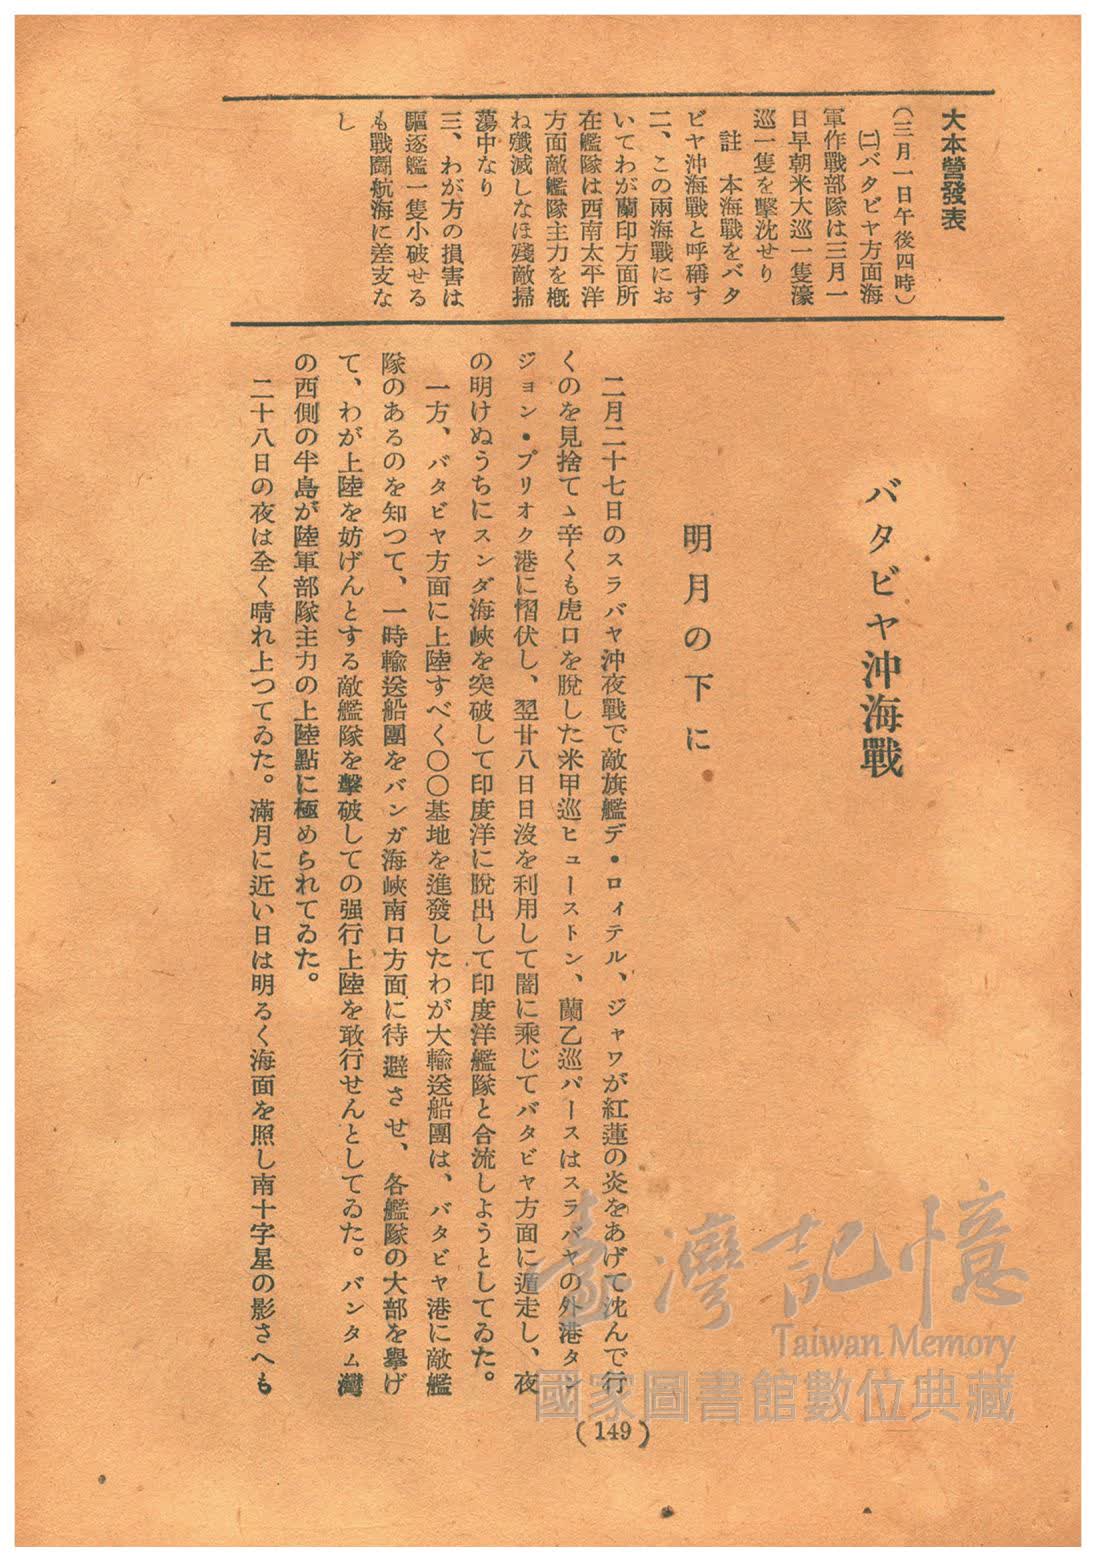 大本營發表
（三月一日午後四時）
㈡バタビヤ方面海
軍作戰部隊は三月一
日早朝米大巡一隻濠
巡一隻を擊沈せり
註　本海戰をバタ
ビヤ沖海戰と呼稱す
二、この兩海戰にお
いてわが蘭印方面所
在艦隊は西南太平洋
方面敵艦隊主力を槪
ね殲滅しなほ殘敵掃
蕩中なり
三、わが方の損害は
驅逐艦一隻小破せる
も戰鬪航海に差支な
し
バタビヤ沖海戰
明月の下に
二月二十七日のスラバヤ沖夜戰で敵旗艦デ・ロイテル、ジャワが紅蓮の炎をあげて沈んで行
くのを見捨てゝ辛くも虎口を脫した米甲巡ヒューストン、蘭乙巡パースはスラバヤの外港タン
ジョン・プリオク港に慴伏し、翌廿八日日沒を利用して闇に乘じてバタビヤ方面に遁走し、夜
の明けぬうちにスンダ海峽を突破して印度洋に脫出して印度洋艦隊と合流しようとしてゐた。
一方、バタビヤ方面に上陸すべく〇〇基地を進發したわが大輸送船團は、バタビヤ港に敵艦
隊のあるのを知つて、一時輸送船團をバンガ海峽南口方面に待避させ、各艦隊の大部を擧げ
て、わが上陸を妨げんとする敵艦隊を擊破しての强行上陸を敢行せんとしてゐた。バンタム灣
の西側の半島が陸軍部隊主力の上陸點に極められてゐた。
二十八日の夜は全く晴れ上つてゐた。滿月に近い日は明るく海面を照し南十字星の影さへも
（149）
臺灣記憶
Taiwan Memory
國家圖書館數位典藏